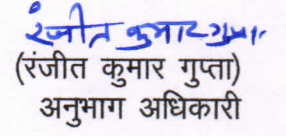 रंजीत कुमार गुप्ता
(रंजीत कुमार गुप्ता)
अनुभाग अधिकारी